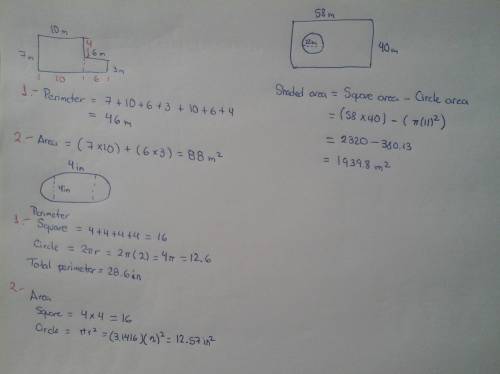 10m
4
7m
6m
3m
10 6
1.- Perimeter = 7+10+6+3 +10+6+4
= 46m
2.- Area = (7×10) + (6×3) = 88 m²
4in
4in
Perimeter
1.- Square = 4+4+4+4 = 16
Circle = 2πr = 2π(2) = 4π = 12.6
Total perimeter = 28.6in
2.- Area
Square = 4×4 = 16
Circle = πr² = (3.1416)(2)² = 12.57in²
58m
40m
Shaded area = Square area - Circle area
= (58×40) - (π(11)²)
= 2320 - 380.13
= 1939.8 m²